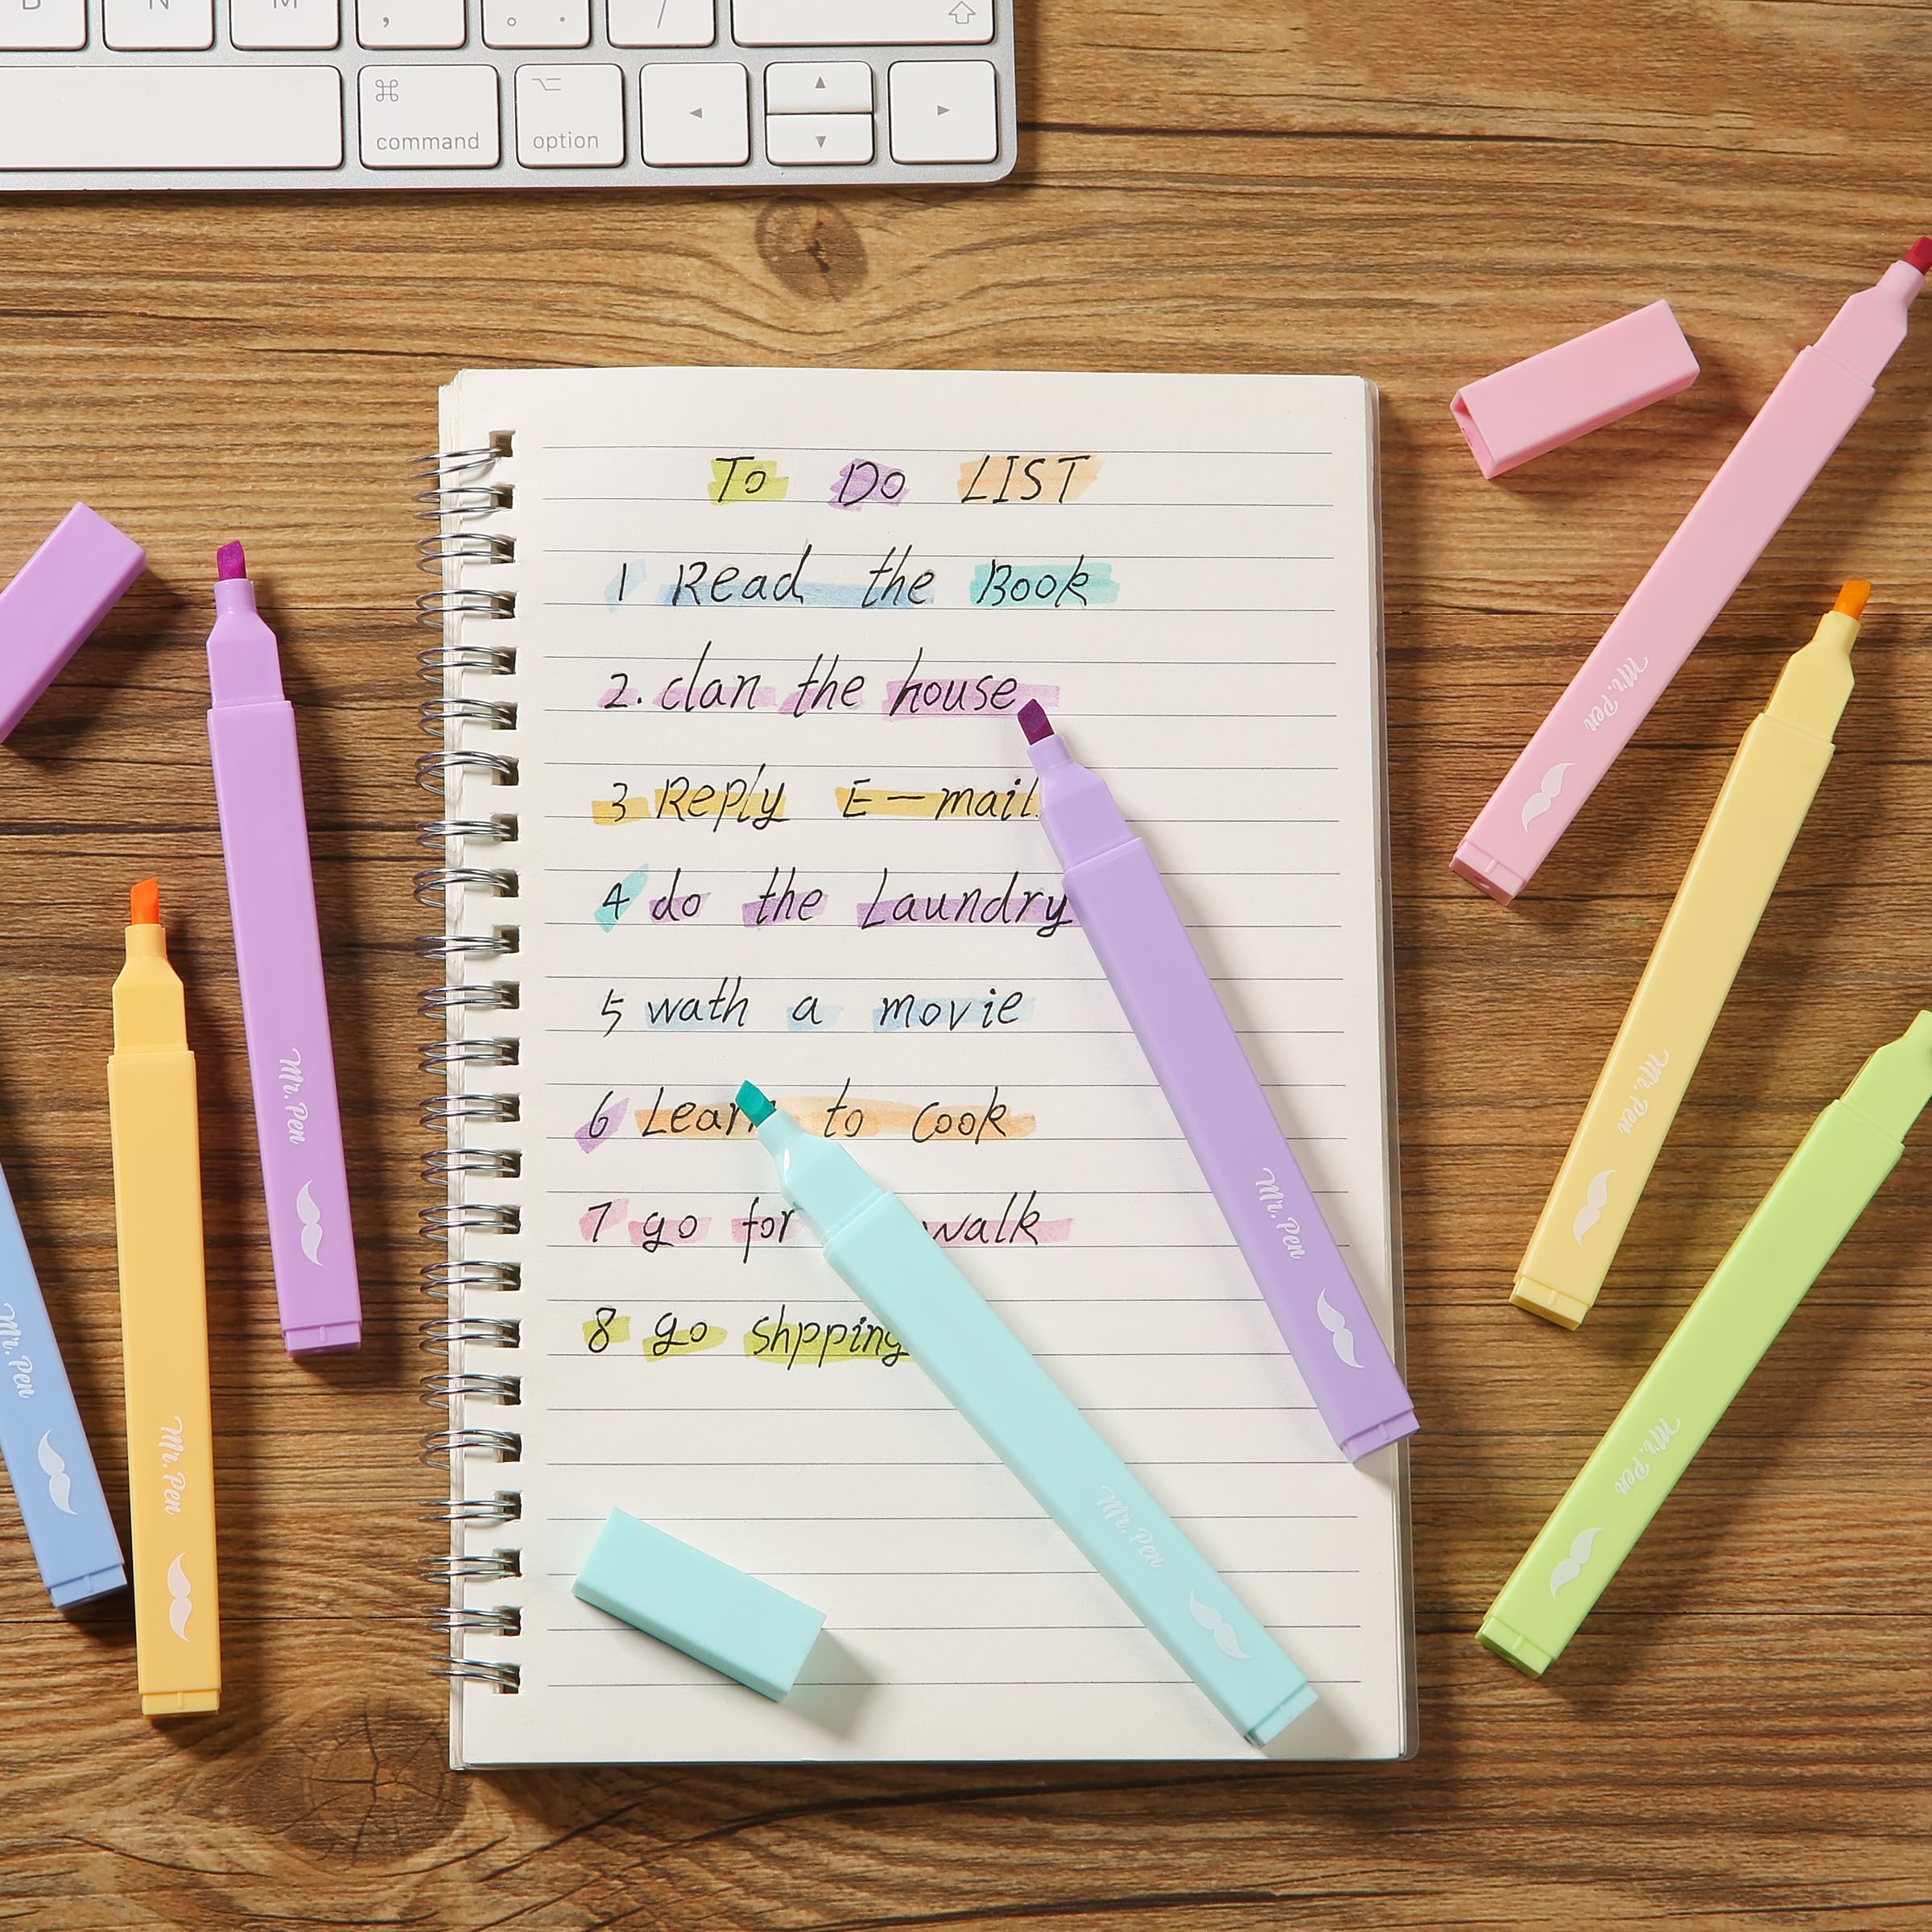 B N M , 。 . /
⌘ command ⌥ option ◂ ▴ ▾ ▸
To Do LIST
1 Read the Book
2. clan the house
3 Reply E-mail
4 do the Laundry
5 wath a movie
6 Learn to Cook
7 go for walk
8 go shpping
Mr. Pen
Mr. Pen
Mr. Pen
Mr. Pen
Mr. Pen
Mr. Pen
Mr. Pen
Mr. Pen